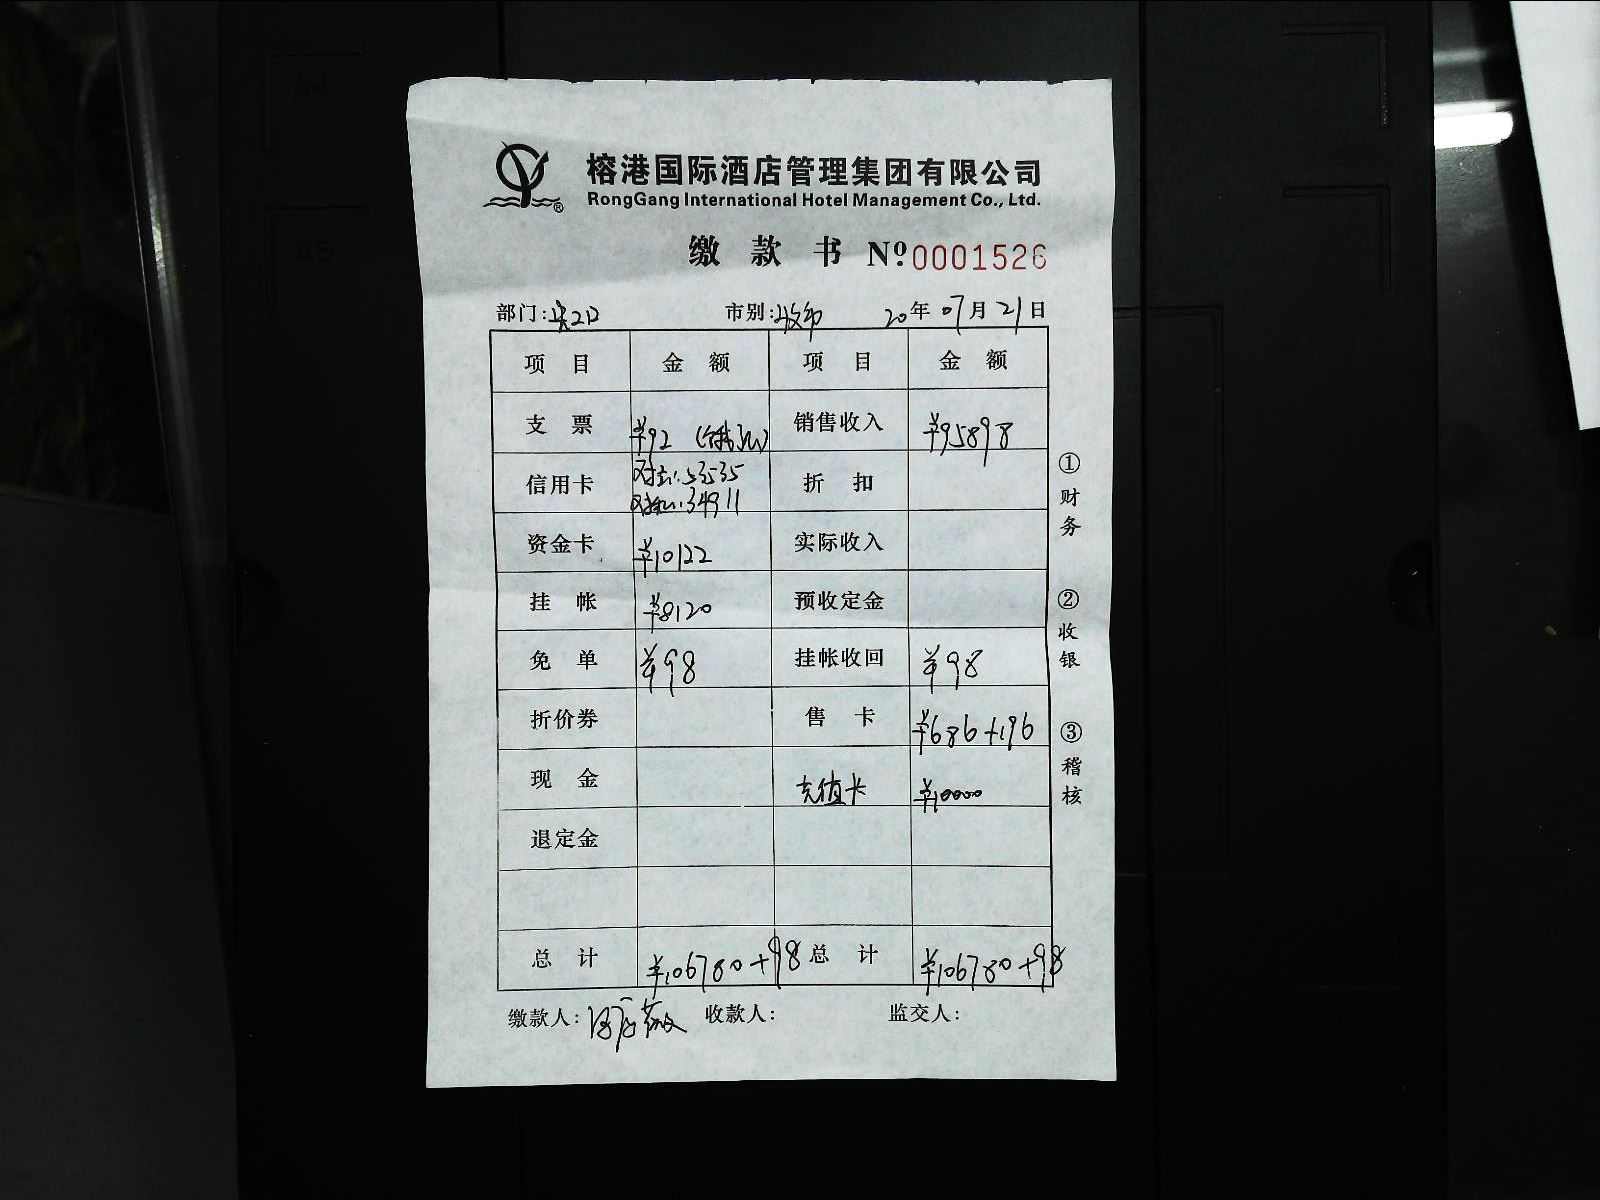 榕港国际酒店管理集团有限公司
RongGang International Hotel Management Co., Ltd.
缴 款 书 Nº 0001526
部门: 市别: 20年07月21日
项 目 金 额 项 目 金 额
支 票 ¥92 销售收入 ¥95898
信用卡 53535 折 扣
34911
资金卡 ¥10122 实际收入
挂 帐 ¥8120 预收定金
免 单 ¥98 挂帐收回 ¥98
折价券 售 卡 ¥686+196
现 金 充值卡 ¥10000
退定金
总 计 ¥106780+98 总 计 ¥106780+98
缴款人: 收款人: 监交人:
①财务
②收银
③稽核
A4
A5